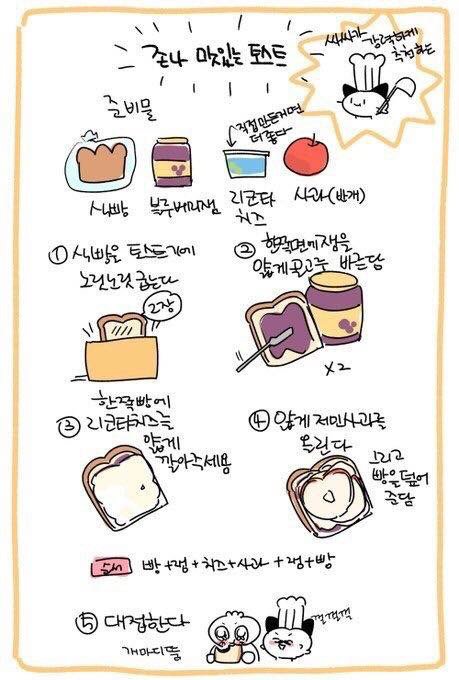 존나 맛있는 토스트
강력하게
추천하는
준비물
직접만든거면
더 좋다
식빵
블루베리잼
리코타
치즈
사과(반개)
① 식빵을 토스트기에
노릇노릇 굽는다
2장
② 한쪽면에 잼을
얇게 골고루 바른담
x2
③ 한쪽빵에
리코타치즈를
얇게
깔아주세용
④ 얇게 저민사과를
올린다
그리고
빵을 덮어
준담
순서
빵+잼+치즈+사과+잼+빵
⑤ 대접한다
개마디뜸
껄껄껄